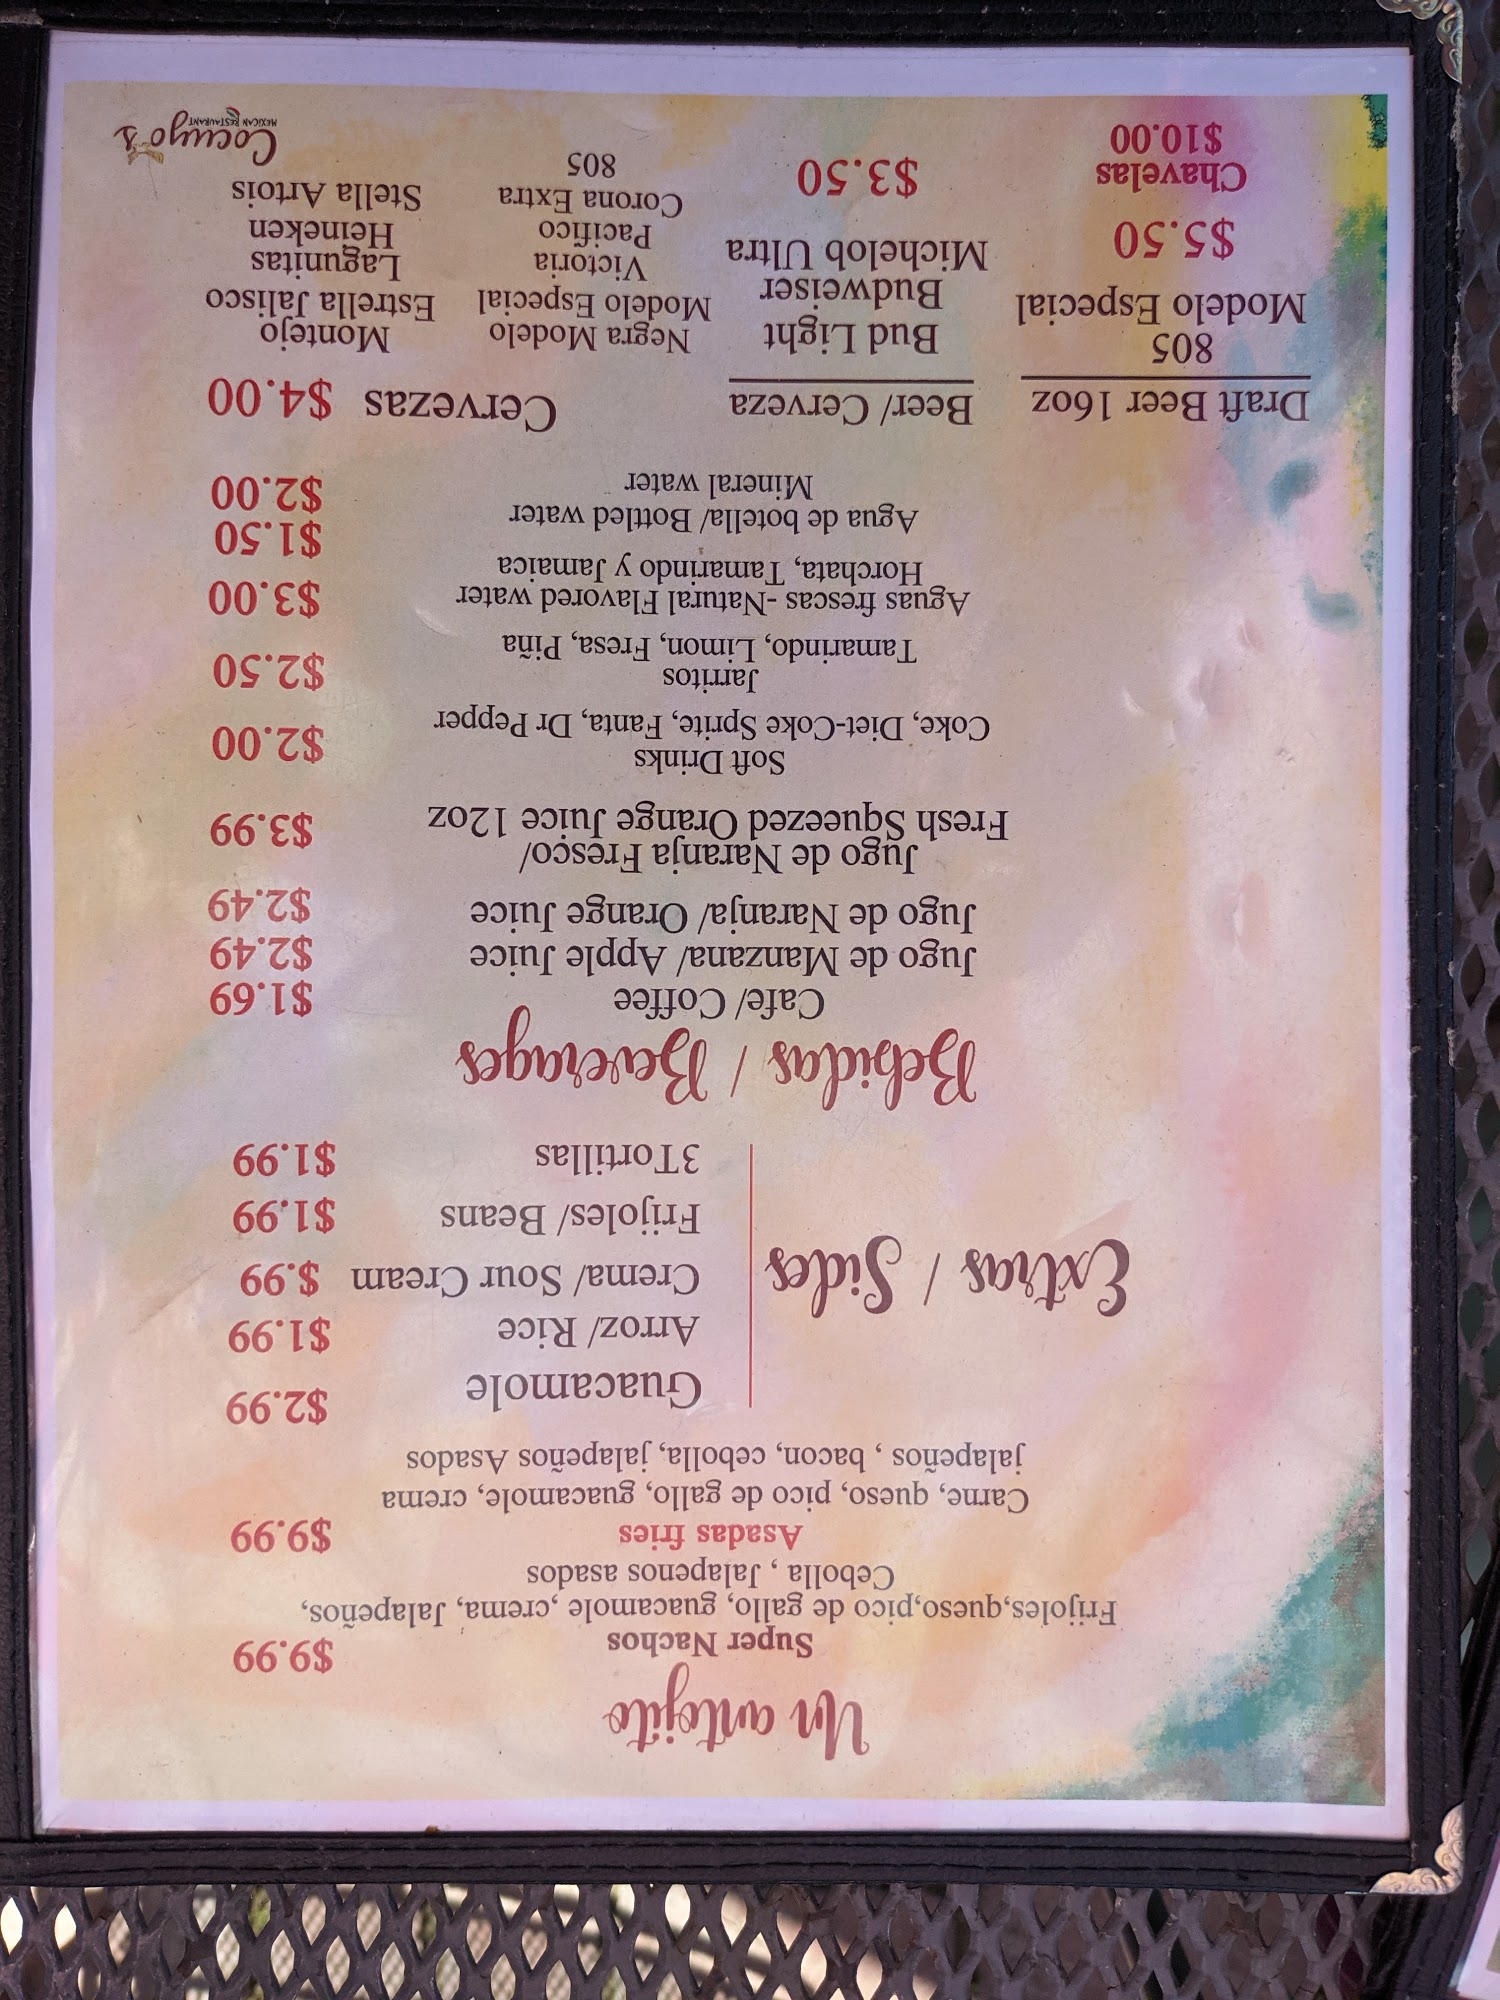 Un antojito
Super Nachos $9.99
Frijoles,queso,pico de gallo, guacamole ,crema, Jalapeños,
Cebolla , Jalapenos asados
Asadas fries $9.99
Carne, queso, pico de gallo, guacamole, crema
jalapeños , bacon, cebolla, jalapeños Asados
Extras / Sides
Guacamole $2.99
Arroz/ Rice $1.99
Crema/ Sour Cream $.99
Frijoles/ Beans $1.99
3Tortillas $1.99
Bebidas / Beverages
Cafe/ Coffee $1.69
Jugo de Manzana/ Apple Juice $2.49
Jugo de Naranja/ Orange Juice $2.49
Jugo de Naranja Fresco/
Fresh Squeezed Orange Juice 12oz $3.99
Soft Drinks
Coke, Diet-Coke Sprite, Fanta, Dr Pepper $2.00
Jarritos
Tamarindo, Limon, Fresa, Piña $2.50
Aguas frescas -Natural Flavored water $3.00
Horchata, Tamarindo y Jamaica
Agua de botella/ Bottled water $1.50
Mineral water $2.00
Draft Beer 16oz
805
Modelo Especial
$5.50
Chavelas
$10.00
Beer/ Cerveza
Bud Light
Budweiser
Michelob Ultra
$3.50
Cervezas $4.00
Negra Modelo
Modelo Especial
Victoria
Pacifico
Corona Extra
805
Montejo
Estrella Jalisco
Lagunitas
Heineken
Stella Artois
Cocuyo's
MEXICAN RESTAURANT